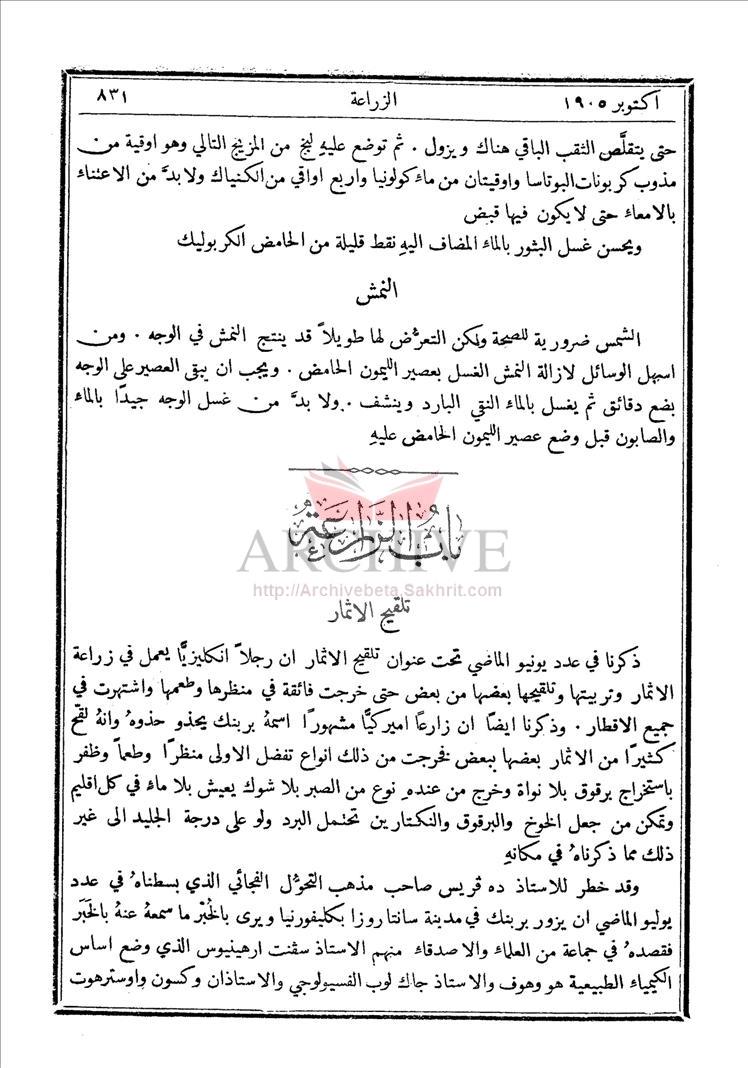 اكتوبر ١٩٠٥ الزراعة ٨٣١
حتى يتقلَّص الثقب الباقي هناك ويزول . ثم توضع عليهِ لبخ من المزيج التالي وهو اوقية من
مذوب كربونات البوتاسا واوقيتان من ماء كولونيا واربع اواقي من الكنياك ولا بدَّ من الاعتناء
بالامعاء حتى لا يكون فيها قبض
ويحسن غسل البثور بالماء المضاف اليهِ نقط قليلة من الحامض الكربوليك
النمش
الشمس ضرورية للصحة ولكن التعرُّض لها طويلاً قد ينتج النمش في الوجه . ومن
اسهل الوسائل لازالة النمش الغسل بعصير الليمون الحامض . ويجب ان يبقى العصير على الوجه
بضع دقائق ثم يغسل بالماء النقي البارد وينشف . ولا بدَّ من غسل الوجه جيدًا بالماء
والصابون قبل وضع عصير الليمون الحامض عليهِ
باب الزراعة
ARCHIVE
http://Archivebeta.Sakhrit.com
تلقيح الاثمار
ذكرنا في عدد يونيو الماضي تحت عنوان تلقيح الاثمار ان رجلاً انكليزيًّا يعمل في زراعة
الاثمار وتربيتها وتلقيحها بعضها من بعض حتى خرجت فائقة في منظرها وطعمها واشتهرت في
جميع الاقطار . وذكرنا ايضًا ان زارعًا اميركيًّا مشهورًا اسمهُ بربنك يحذو حذوهُ وانهُ لقح
كثيرًا من الاثمار بعضها ببعض فخرجت من ذلك انواع تفضل الاولى منظرًا وطعماً وظفر
باستخراج برقوق بلا نواة وخرج من عندهِ نوع من الصبر بلا شوك يعيش بلا ماء في كل اقليم
وتمكن من جعل الخوخ والبرقوق والنكتارين تحتمل البرد ولو على درجة الجليد الى غير
ذلك مما ذكرناهُ في مكانهِ
وقد خطر للاستاذ ده ڤريس صاحب مذهب التحوُّل الفجائي الذي بسطناهُ في عدد
يوليو الماضي ان يزور بربنك في مدينة سانتا روزا بكليفورنيا ويرى بالخُبْر ما سمعهُ عنهُ بالخَبَر
فقصدهُ في جماعة من العلماء والاصدقاء منهم الاستاذ سڤنت ارهينيوس الذي وضع اساس
الكيمياء الطبيعية هو وهوف والاستاذ جاك لوب الفسيولوجي والاستاذان وكسون واوسترهوت